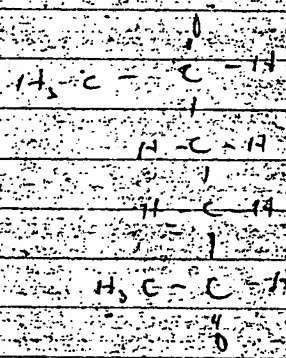 O
H₃ C - C - H
H - C - H
H - C - H
H₃ C - C - H
O